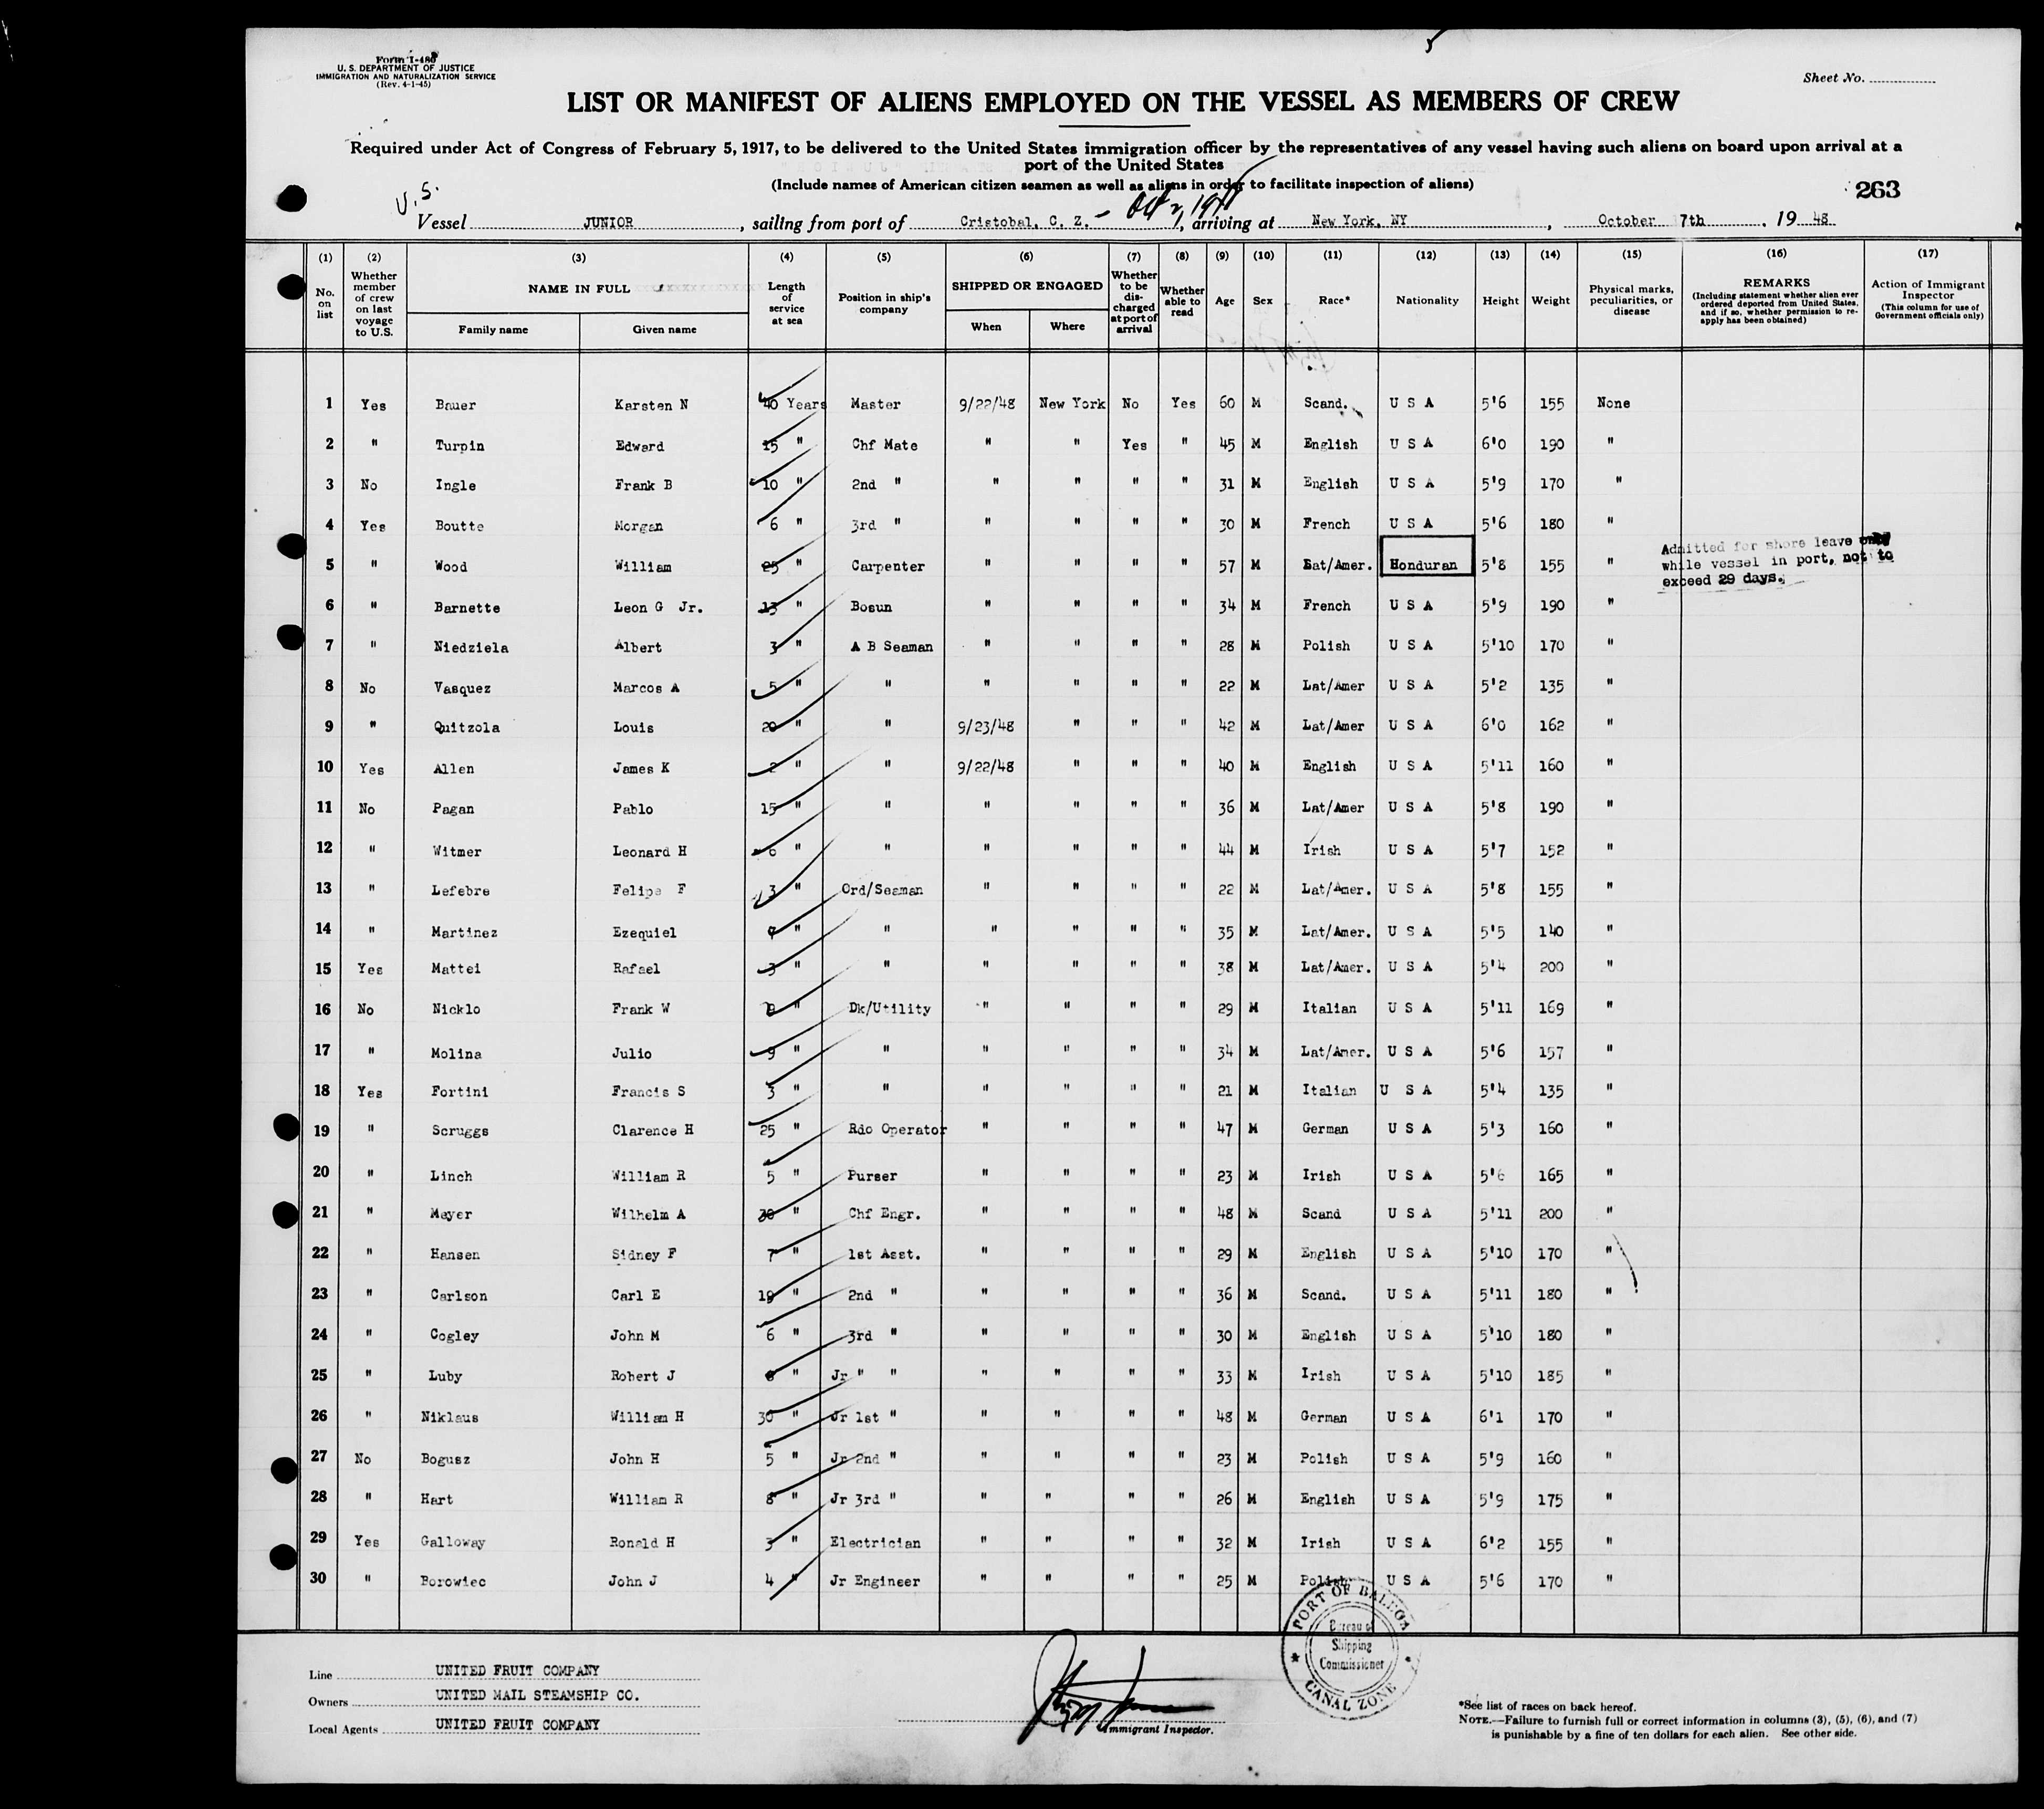 Form I-480
U. S. DEPARTMENT OF JUSTICE
IMMIGRATION AND NATURALIZATION SERVICE
(Rev. 4-1-45)
Sheet No.
LIST OR MANIFEST OF ALIENS EMPLOYED ON THE VESSEL AS MEMBERS OF CREW
Required under Act of Congress of February 5, 1917, to be delivered to the United States immigration officer by the representatives of any vessel having such aliens on board upon arrival at a
port of the United States
(Include names of American citizen seamen as well as aliens in order to facilitate inspection of aliens)
263
U.S.
Vessel JUNIOR, sailing from port of Cristobal, C. Z. - Oct 2, arriving at New York, NY, October 7th, 19 48
(1) (2) (3) (4) (5) (6) (7) (8) (9) (10) (11) (12) (13) (14) (15) (16) (17)
No. on list
Whether member of crew on last voyage to U.S.
NAME IN FULL
Family name Given name
Length of service at sea
Position in ship's company
SHIPPED OR ENGAGED
When Where
Whether to be discharged at port of arrival
Whether able to read
Age Sex Race* Nationality Height Weight
Physical marks, peculiarities, or disease
REMARKS
(Including statement whether alien ever ordered deported from United States, and if so, whether permission to re-apply has been obtained)
Action of Immigrant Inspector
(This column for use of Government officials only)
1 Yes Bauer Karsten N 40 Years Master 9/22/48 New York No Yes 60 M Scand. U S A 5'6 155 None
2 " Turpin Edward 15 " Chf Mate " " Yes " 45 M English U S A 6'0 190 "
3 No Ingle Frank B 10 " 2nd " " " " " 31 M English U S A 5'9 170 "
4 Yes Boutte Morgan 6 " 3rd " " " " " 30 M French U S A 5'6 180 "
5 " Wood William 25 " Carpenter " " " " 57 M Lat/Amer. Honduran 5'8 155 "
Admitted for shore leave only
while vessel in port, not to
exceed 29 days.
6 " Barnette Leon G Jr. 13 " Bosun " " " " 34 M French U S A 5'9 190 "
7 " Niedziela Albert 3 " A B Seaman " " " " 28 M Polish U S A 5'10 170 "
8 No Vasquez Marcos A 5 " " " " " " 22 M Lat/Amer U S A 5'2 135 "
9 " Quitzola Louis 20 " " 9/23/48 " " " 42 M Lat/Amer U S A 6'0 162 "
10 Yes Allen James K 2 " " 9/22/48 " " " 40 M English U S A 5'11 160 "
11 No Pagan Pablo 15 " " " " " " 36 M Lat/Amer U S A 5'8 190 "
12 " Witmer Leonard H 6 " " " " " " 44 M Irish U S A 5'7 152 "
13 " Lefebre Felipe F 3 " Ord/Seaman " " " " 22 M Lat/Amer. U S A 5'8 155 "
14 " Martinez Ezequiel " " " " " " 35 M Lat/Amer. U S A 5'5 140 "
15 Yes Mattei Rafael 3 " " " " " " 38 M Lat/Amer. U S A 5'4 200 "
16 No Nicklo Frank W " Dk/Utility " " " " 29 M Italian U S A 5'11 169 "
17 " Molina Julio 9 " " " " " " 34 M Lat/Amer. U S A 5'6 157 "
18 Yes Fortini Francis S 3 " " " " " " 21 M Italian U S A 5'4 135 "
19 " Scruggs Clarence H 25 " Rdo Operator " " " " 47 M German U S A 5'3 160 "
20 " Linch William R 5 " Purser " " " " 23 M Irish U S A 5'6 165 "
21 " Meyer Wilhelm A 30 " Chf Engr. " " " " 48 M Scand U S A 5'11 200 "
22 " Hansen Sidney F 7 " 1st Asst. " " " " 29 M English U S A 5'10 170 "
23 " Carlson Carl E 19 " 2nd " " " " " 36 M Scand. U S A 5'11 180 "
24 " Cogley John M 6 " 3rd " " " " " 30 M English U S A 5'10 180 "
25 " Luby Robert J " Jr " " " " " " 33 M Irish U S A 5'10 185 "
26 " Niklaus William H 30 " Jr 1st " " " " " 48 M German U S A 6'1 170 "
27 No Bogusz John H 5 " Jr 2nd " " " " " 23 M Polish U S A 5'9 160 "
28 " Hart William R 8 " Jr 3rd " " " " " 26 M English U S A 5'9 175 "
29 Yes Galloway Ronald H 3 " Electrician " " " " 32 M Irish U S A 6'2 155 "
30 " Borowiec John J 4 " Jr Engineer " " " " 25 M Polish U S A 5'6 170 "
PORT OF BALBOA
Bureau of
Shipping
Commissioner
CANAL ZONE
Line UNITED FRUIT COMPANY
Owners UNITED MAIL STEAMSHIP CO.
Local Agents UNITED FRUIT COMPANY
Immigrant Inspector.
*See list of races on back hereof.
NOTE.—Failure to furnish full or correct information in columns (3), (5), (6), and (7)
is punishable by a fine of ten dollars for each alien. See other side.